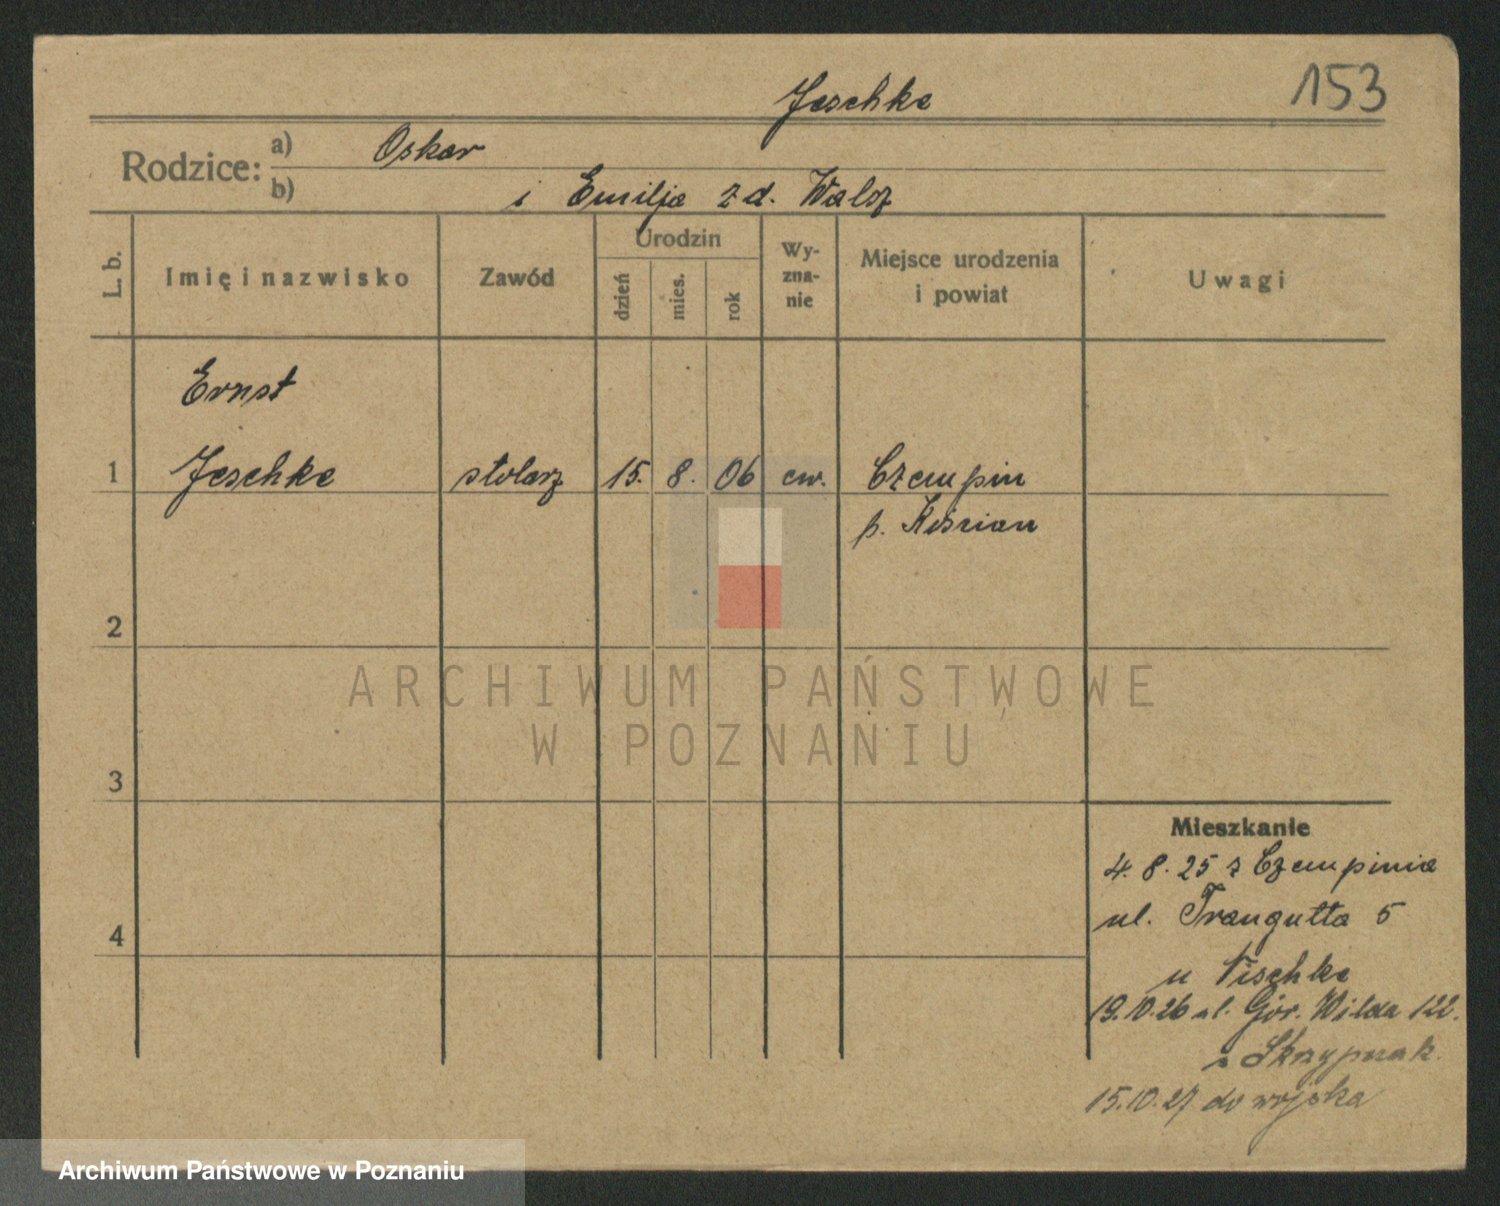 153
Jeschke
Rodzice: a) Oskar
b) i Emilja z d. Walsz
L. b. Imię i nazwisko Zawód Urodzin dzień mies. rok Wy-zna-nie Miejsce urodzenia i powiat Uwagi
Ernst
1 Jeschke stolarz 15. 8. 06 ew. Czempin
p. Kościan
2
3
4
Mieszkanie
4. 8. 25 z Czempinia
ul. Traugutta 5
u Nischke
19.10.26 ul. Gór. Wilda 122.
Skrzypczak
15.10.27 do wojska
ARCHIWUM PAŃSTWOWE
W POZNANIU
Archiwum Państwowe w Poznaniu